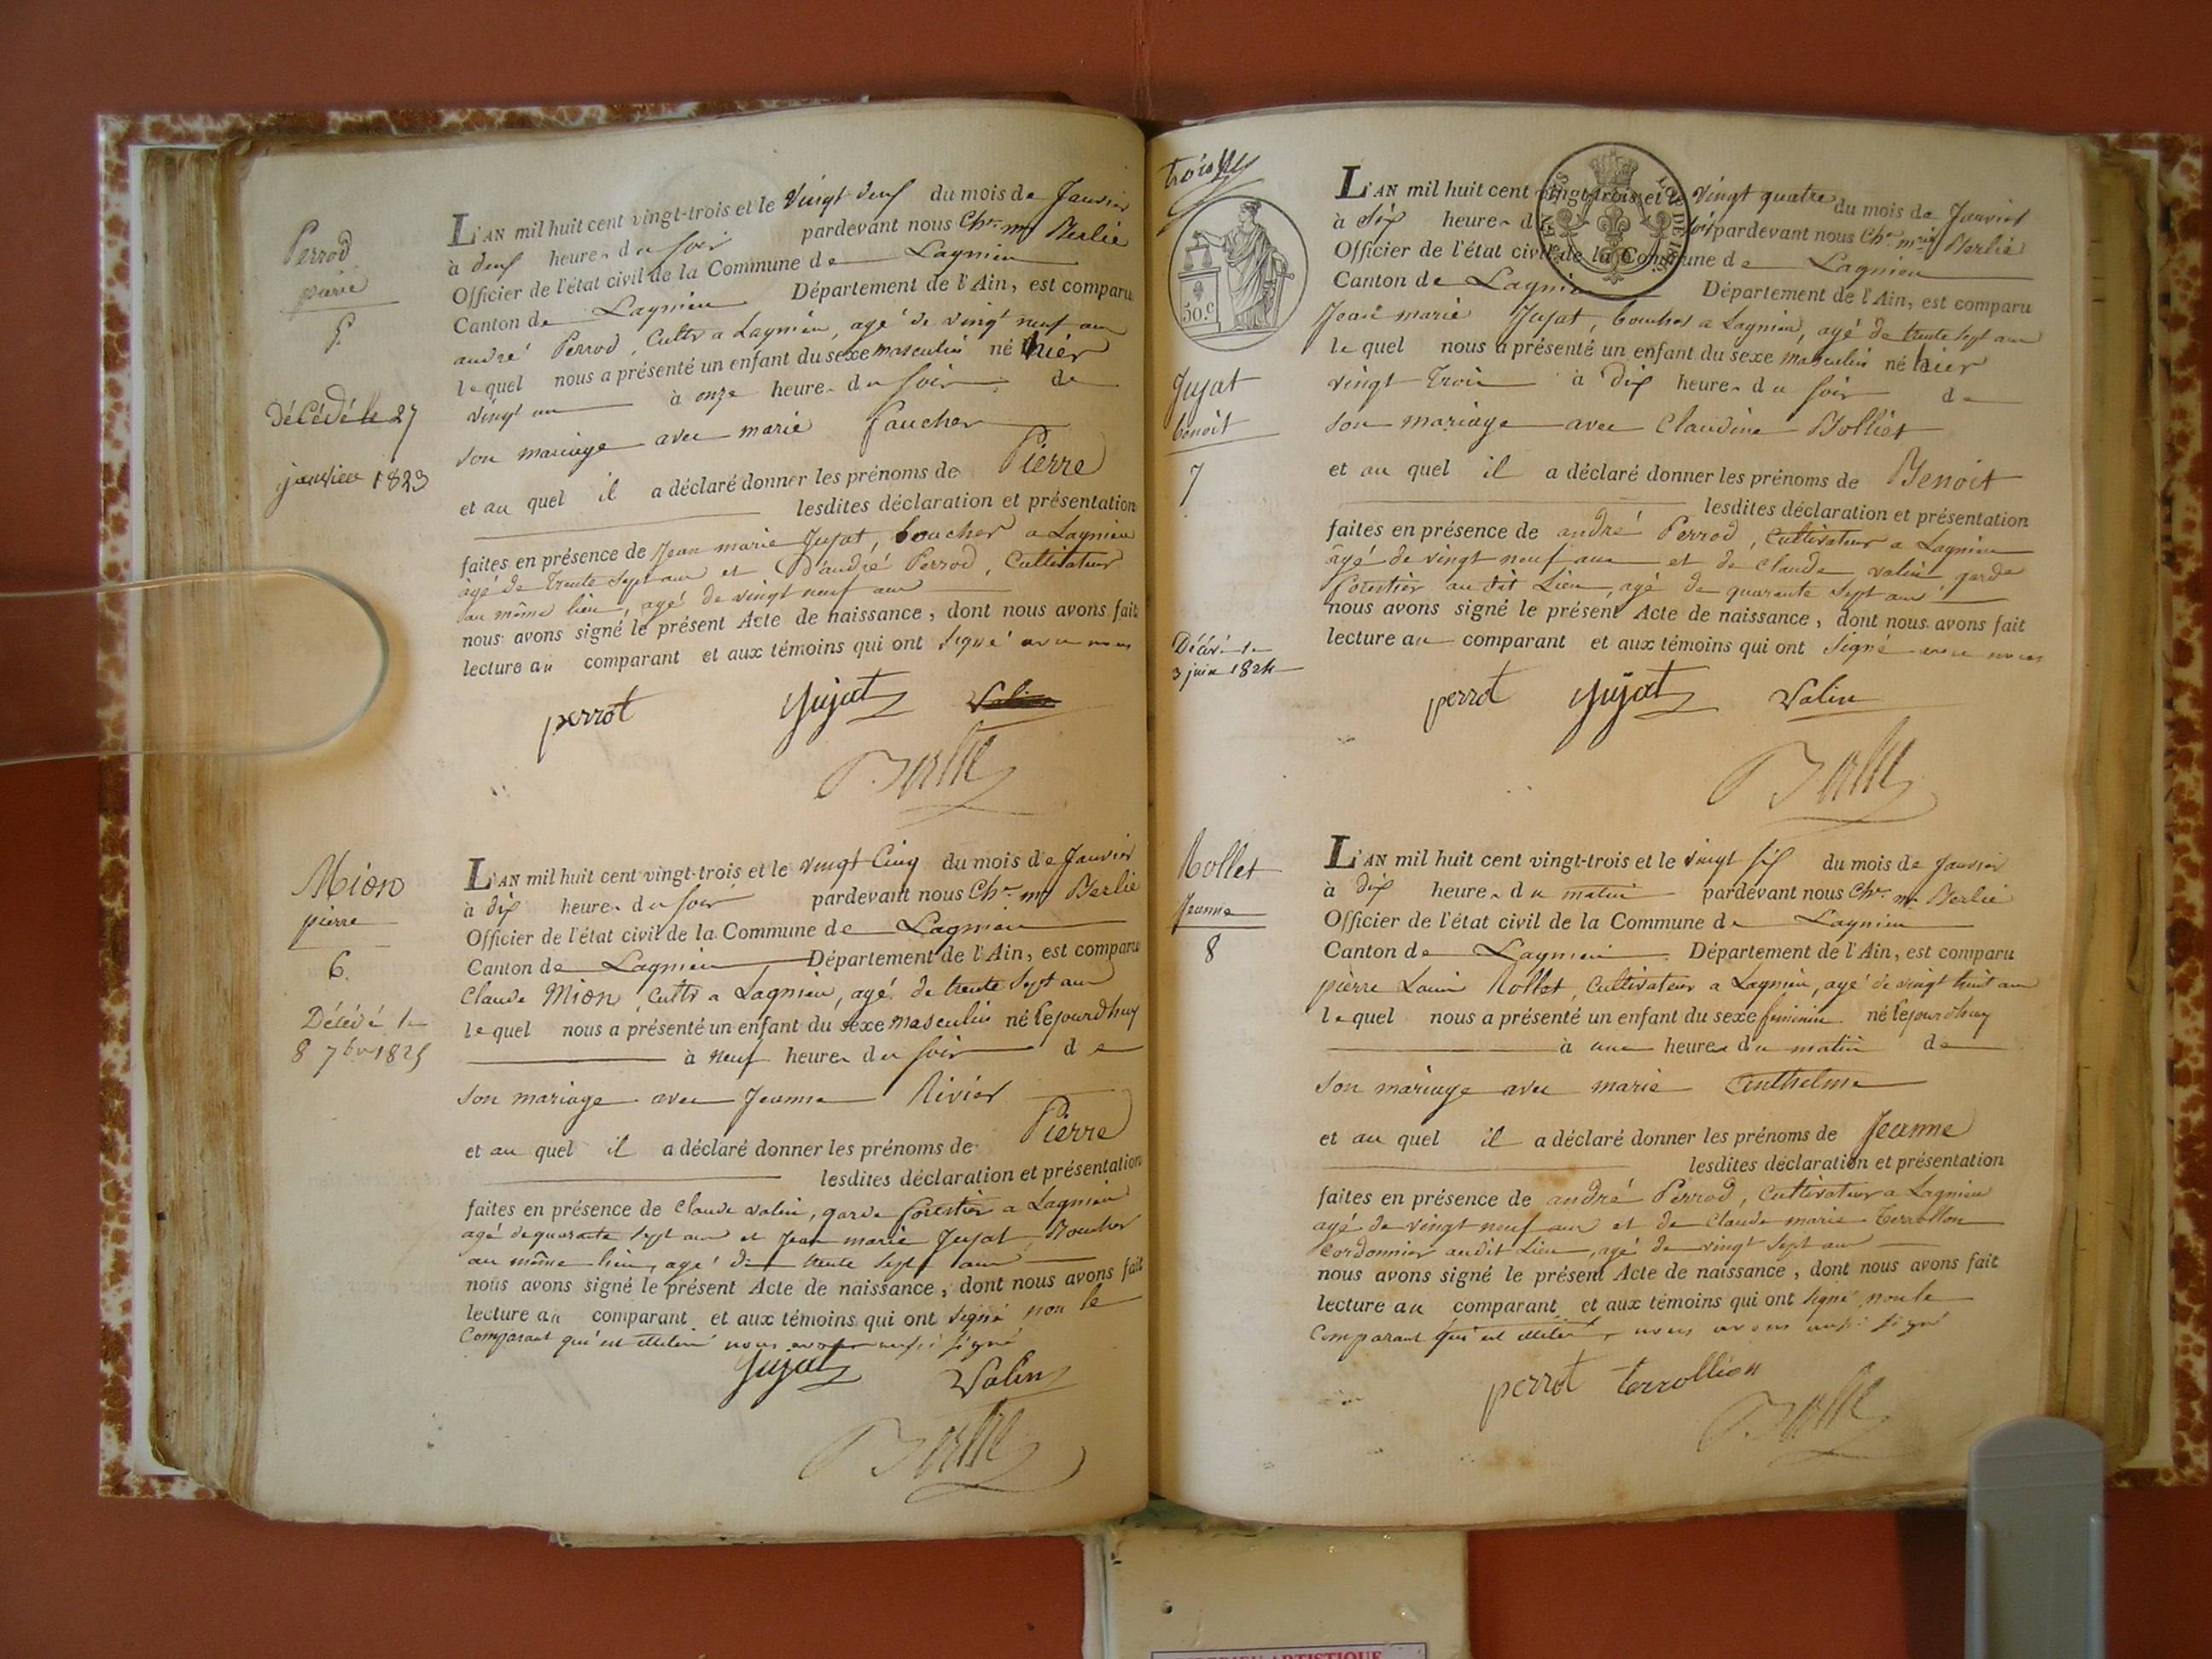 Perrod
pierre
5.
Décédé le 27
janvier 1823
L'AN mil huit cent vingt-trois et le vingt deux du mois de Janvier
à deux heures du soir pardevant nous Chr. m. Berlié
Officier de l'état civil de la Commune de Lagnieu
Canton de Lagnieu Département de l'Ain, est comparu
andré Perrod, Cultr a Lagnieu, agé de vingt neuf ans
lequel nous a présenté un enfant du sexe masculin né hier
vingt un à onze heures du soir de
son mariage avec marie faucher
et au quel il a déclaré donner les prénoms de Pierre
lesdites déclaration et présentation
faites en présence de Jean marie Jujat, boucher a Lagnieu
agé de trente sept ans et D'andré Perrod, Cultivateur
au même lieu, agé de vingt neuf ans
nous avons signé le présent Acte de naissance, dont nous avons fait
lecture au comparant et aux témoins qui ont signé avec nous
perrot Jujat
Berlié
Mion
pierre
6.
Décédé le
8 7bre 1825
L'AN mil huit cent vingt-trois et le vingt Cinq du mois de Janvier
à dix heures du soir pardevant nous Chr. m. Berlié
Officier de l'état civil de la Commune de Lagnieu
Canton de Lagnieu Département de l'Ain, est comparu
Claude Mion, Cultr a Lagnieu, agé de trente sept ans
lequel nous a présenté un enfant du sexe masculin né cejourdhuy
à neuf heures du soir de
son mariage avec Jeanne Rivier
et au quel il a déclaré donner les prénoms de Pierre
lesdites déclaration et présentation
faites en présence de Claude valin, garde forestier a Lagnieu
agé de quarante sept ans et Jean marie Jujat, Boucher
au même lieu, agé de trente sept ans
nous avons signé le présent Acte de naissance, dont nous avons fait
lecture au comparant et aux témoins qui ont signé non le
Comparant qui est illiteré nous avons aussi signé
Jujat Valin
Berlié
trois
50.c
Jujat
benoit
7
Décédé le
3 juin 1824
L'AN mil huit cent vingt-trois et le vingt quatre du mois de Janvier
à six heures du soir pardevant nous Chr. m. Berlié
Officier de l'état civil de la Commune de Lagnieu
Canton de Lagnieu Département de l'Ain, est comparu
Jean marie Jujat, boucher a Lagnieu, agé de trente sept ans
lequel nous a présenté un enfant du sexe masculin né hier
vingt trois à dix heures du soir de
son mariage avec Claudine Bolliet
et au quel il a déclaré donner les prénoms de Benoit
lesdites déclaration et présentation
faites en présence de andré Perrod, Cultivateur a Lagnieu
âgé de vingt neuf ans et de Claude valin garde
forestier au dit Lieu, agé de quarante sept ans
nous avons signé le présent Acte de naissance, dont nous avons fait
lecture au comparant et aux témoins qui ont signé avec nous
perrot Jujat Valin
Berlié
Rollet
Jeanne
8
L'AN mil huit cent vingt-trois et le vingt six du mois de Janvier
à dix heures du matin pardevant nous Chr. m. Berlié
Officier de l'état civil de la Commune de Lagnieu
Canton de Lagnieu Département de l'Ain, est comparu
pierre Louis Rollet, Cultivateur a Lagnieu, agé de vingt huit ans
lequel nous a présenté un enfant du sexe feminin né cejourdhuy
à une heures du matin de
son mariage avec marie Anthelme
et au quel il a déclaré donner les prénoms de Jeanne
lesdites déclaration et présentation
faites en présence de andré Perrod, Cultivateur a Lagnieu
agé de vingt neuf ans et de Claude marie terrollion
Cordonnier audit Lieu, agé de vingt sept ans
nous avons signé le présent Acte de naissance, dont nous avons fait
lecture au comparant et aux témoins qui ont signé non le
Comparant qui est illiteré, nous avons aussi signé
perrot terrollion
Berlié